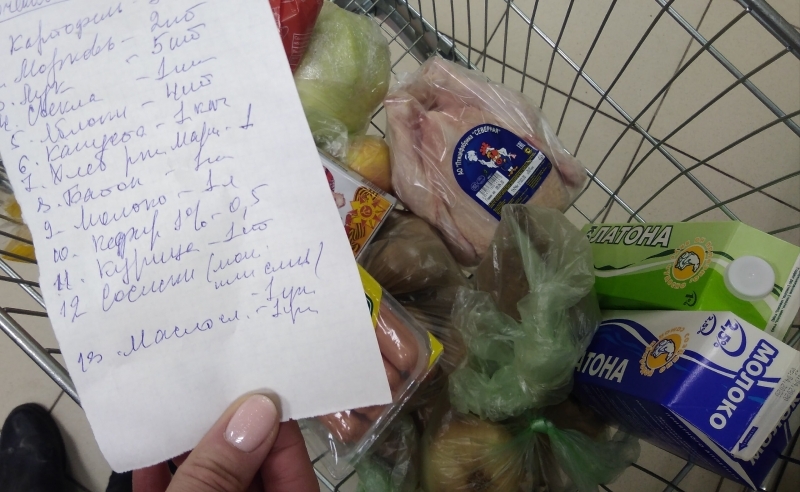 Картофель -
Морковь - 2шт
3. Лук - 5шт
4. Свекла - 1шт
5. Яблоки - 4шт
6. Капуста - 1 коч
7. Хлеб рж. мари. - 1
8. Батон - 1шт
9. Молоко - 1л
10. Кефир 1% - 0,5
11. Курица - 1шт
12 Сосиски (мол.
или слив)
- 1уп
13. Масло сл. - 1уп
АО "Птицефабрика "СЕВЕРНАЯ"
ЛАТОНА
2,5%
2,5%
АТОНА
МОЛОКО